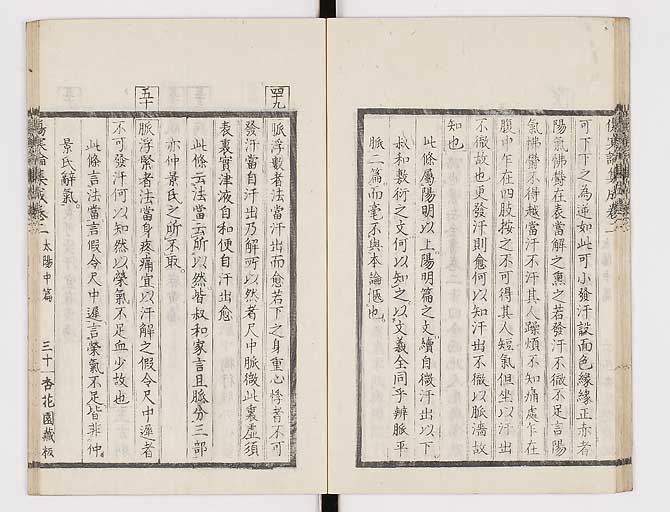 可下下之為逆如此可小發汗設面色緣緣正赤者
陽氣怫鬱在表當解之熏之若發汗不徹不足言陽
氣怫鬱不得越當汗不汗其人躁煩不知痛處乍在
腹中乍在四肢按之不可得其人短氣但坐以汗出
不徹故也更發汗則愈何以知汗出不徹以脈濇故
知也
此條屬陽明以上陽明篇之文續自微汗出以下
叔和敷衍之文何以知之以文義全同乎辨脈平
脈二篇而毫不與本論也
四十九
脈浮數者法當汗出而愈若下之身重心悸者不可
發汗當自汗出乃解所以然者尺中脈微此裏虛須
表裏實津液自和便自汗出愈
此條云法當云所以然皆叔和家言且脈分三部
亦仲景氏之所不取
五十
脈浮緊者法當身疼痛宜以汗解之假令尺中遲者
不可發汗何以知然以榮氣不足血少故也
此條言法當言假令尺中遲言榮氣不足皆非仲
景氏辭氣
傷寒論集成卷二 太陽中篇 三十 杏花園藏板